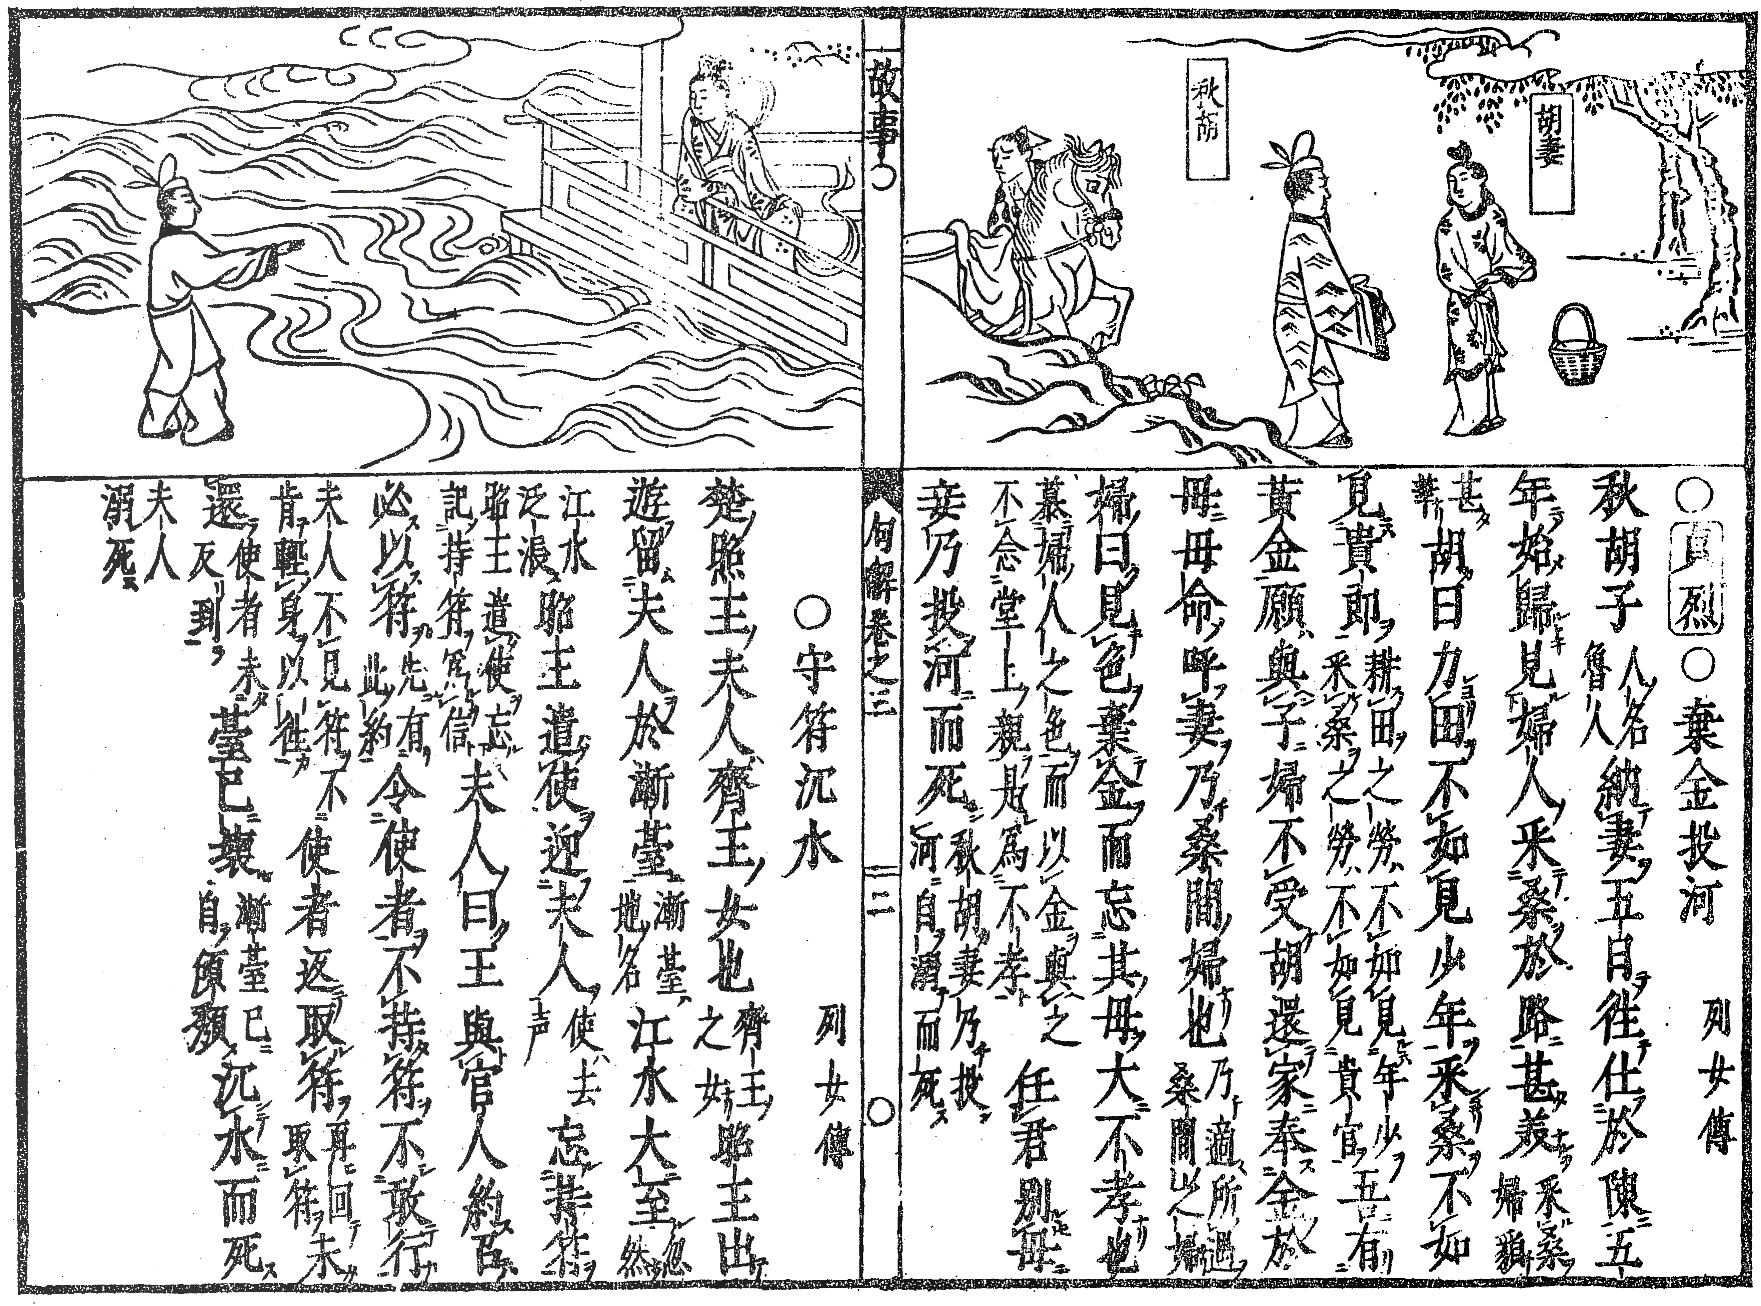 胡妻
秋胡
○貞烈○棄金投河 列女傳
秋胡子人名魯人納妻五日往仕於陳五
年始歸見婦人采桑於路甚羙采桑婦貌
甚華胡曰力田不如見少年采桑不如
見貴郎耕田之勞不如見年少采桑之勞不如見貴官吾有
黃金願與子婦不受胡還家奉金於
母母命呼妻乃桑間婦也乃適所遇桑間之婦
婦曰見色棄金而忘其母大不孝也
慕婦人之色而以金與之不念堂上親是爲不孝任君別母
妾乃投河而死秋胡妻乃投河自溺而死
故事○
句解卷之三
二
○
○守符沉水 列女傳
楚照王夫人齊王女也齊王之女昭王出
遊留夫人於漸臺漸臺地名江水大至忽然
江水泛漲昭王遣使迎夫人使去声忘持符
昭王遣使忘記持符爲信夫人曰王與官人約召
必以符先有此約令使者不持符不敢行
夫人不見符不肯輕身以往使者返取符再回取符未
還使者未反到臺已壞漸臺已自傾頹沉水而死
夫人溺死